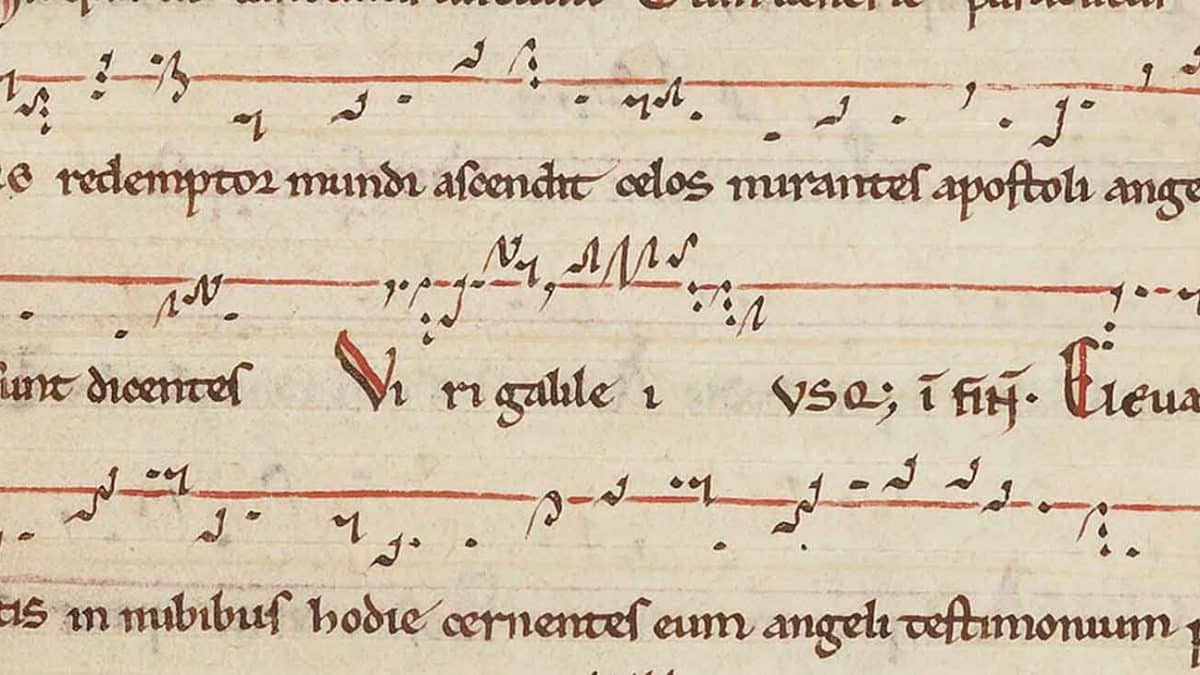 redemptor mundi ascendit celos mirantes apostoli ange
sunt dicentes Vi ri galile i vsq; ī finē. Eleua
tis in nubibus hodie cernentes eum angeli testimonium p